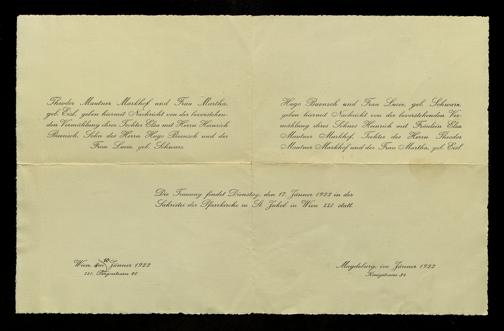 Theodor Mautner Markhof und Frau Martha,
geb. Eisl, geben hiermit Nachricht von der bevorstehen-
den Vermählung ihrer Tochter Elsa mit Herrn Heinrich
Baensch, Sohn des Herrn Hugo Baensch und der
Frau Lucie, geb. Schwarz.
Hugo Baensch und Frau Lucie, geb. Schwarz,
geben hiermit Nachricht von der bevorstehenden Ver-
mählung ihres Sohnes Heinrich mit Fräulein Elsa
Mautner Markhof, Tochter des Herrn Theodor
Mautner Markhof und der Frau Martha, geb. Eisl.
Die Trauung findet Dienstag, den 17. Jänner 1922 in der
Sakristei der Pfarrkirche zu St. Jakob in Wien XXI statt.
Wien, Jänner 1922
XXI., 40
Magdeburg, im Jänner 1922